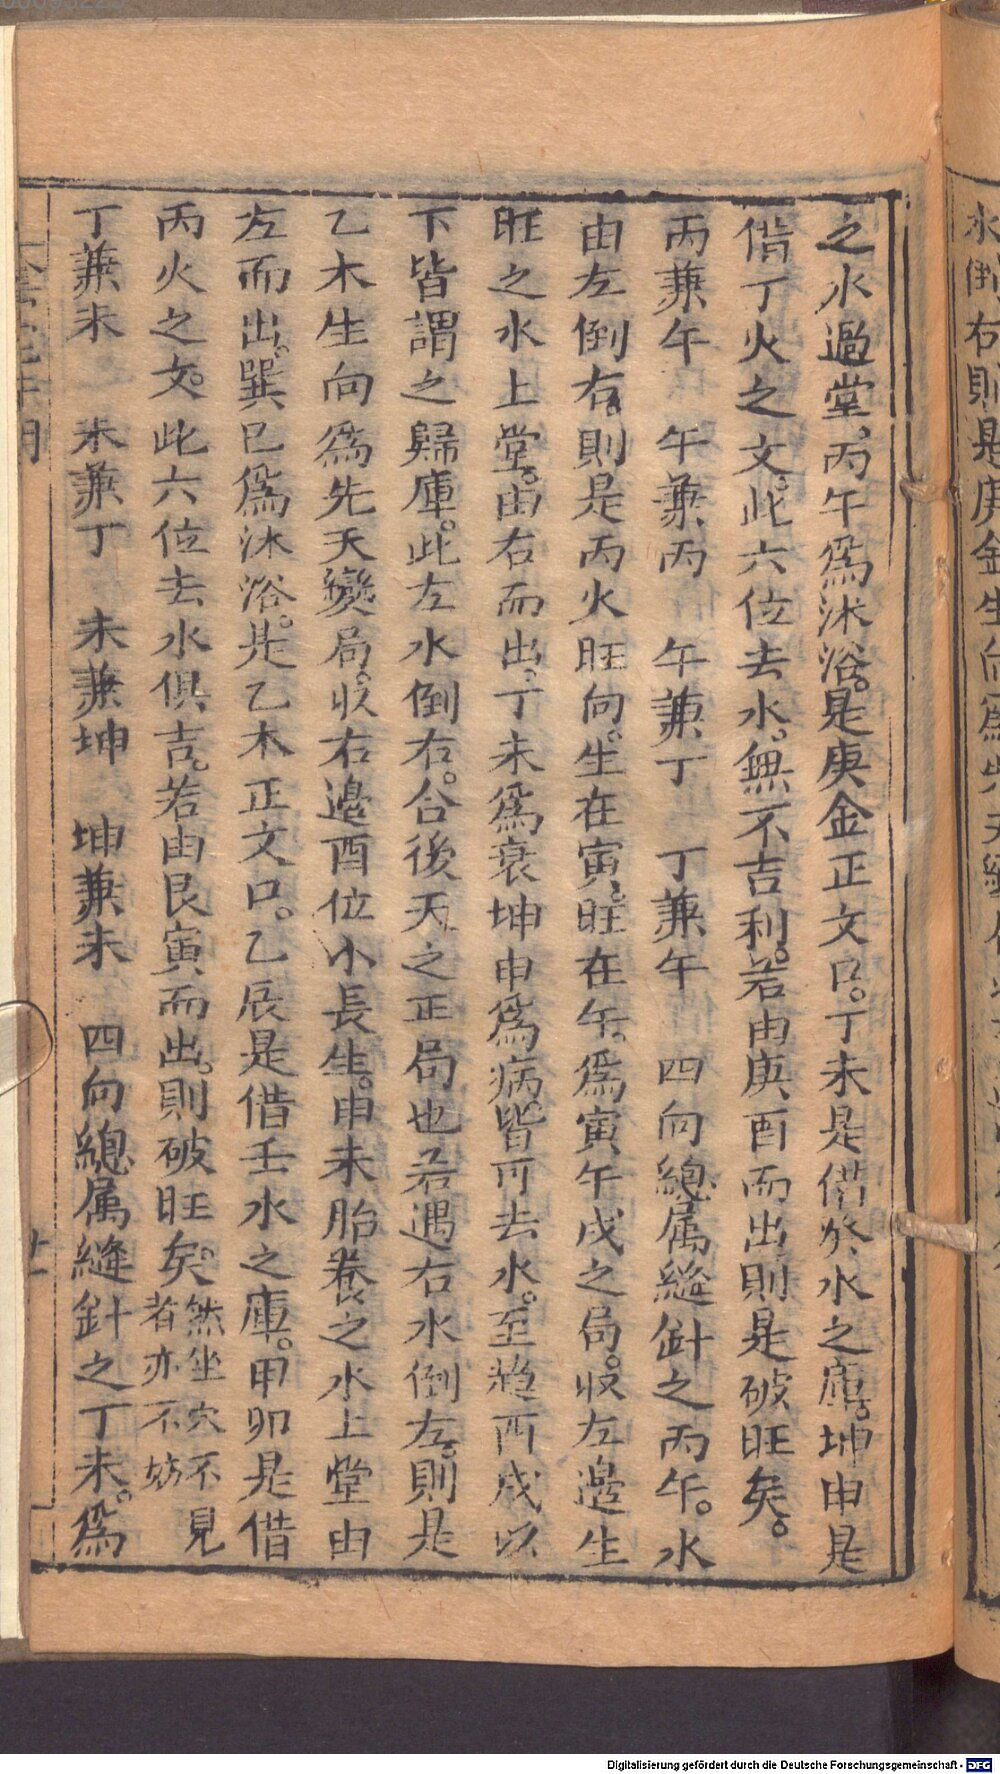 水倒右則是庚金生向爲先天
之水過堂。丙午爲沐浴。是庚金正文口。丁未是借癸水之庫。坤申是
借丁火之文。此六位去水。無不吉利。若由庚酉而出則是破旺矣。
丙兼午 午兼丙 午兼丁 丁兼午 四向總属縫針之丙午。水
由左倒右。則是丙火旺向。生在寅。旺在午。爲寅午戌之局。收左邉生
旺之水上堂。由右而出。丁未爲衰坤申爲病。皆可去水。至趋酉戌以
下皆謂之歸庫。此左水倒右。合後天之正局也若遇右水倒左。則是
乙木生向爲先天變局。收右邉酉位小長生。申未胎养之水上堂由
左而出。巽巳爲沐浴。是乙木正文口。乙辰是借壬水之庫。甲卯是借
丙火之文。此六位去水俱吉。若由艮寅而出。則破旺矣。然坐穴不見者亦不妨
丁兼未 未兼丁 未兼坤 坤兼未 四向總属縫針之丁未。爲
Digitalisierung gefördert durch die Deutsche Forschungsgemeinschaft - DFG